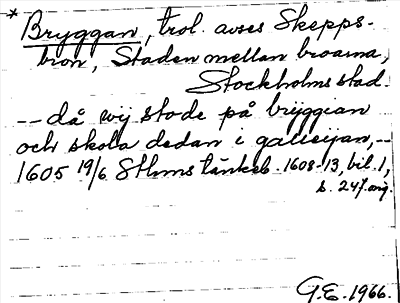 * Bryggan, trol. avses Skepps-
bron, Staden mellan broarna,
Stockholms stad.
-- då wij stode på bryggian
och skola dedan i galleijan, --
1605 19/6 Sthms tänkeb. 1608-13, bil. 1,
s. 247 ang.
G.E. 1966.